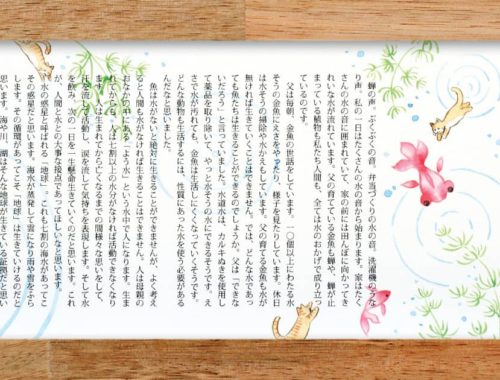 蝉の声。ぶくぶくの音。弁当づくりの水の音。洗濯機のうな
り声。私の一日はたくさんの水の音から始まります。家はたく
さんの水の音に囲まれていて、家の前には田んぼに向かってき
れいな水が流れています。父の育てている金魚も蝉や、蝉が止
まっている植物も私たち人間も、全ては水のおかげで成り立っ
ているのです。
父は毎朝、金魚の世話をしています。一〇個以上にわたる水
そうの金魚にえさをやったり、様子を見たりしています。休日
は水そうの掃除や水がえもしています。父の育てる金魚も水が
無ければ生きていくことはできません。では、どんな水であっ
ても魚たちは生きることができるのでしょうか。父は「できな
いだろう」と言っていました。水道水は、カルキぬきを使用し
て薬品を取り除いて、やっと水そうの水にできるそうです。え
さなどで水が汚れても、金魚は生活しにくくなっていくそうです。
どんな動物も生活するには、性質にあった水を使う必要がある
魚は水がないと絶対に生きることができませんが、よく考え
ると人間も水がなければ生きることはできません。人は母親の
おなかの中にある「よう水」という水の中で人になります。生ま
れてからも、人は七割以上の水分がなければ活動できなくなり
ます。人は生まれてから亡くなるまでの間様々な思いをして、
汗を流して活動し、涙を流して気持ちを表現します。そして水
を飲み、次の一日を一生懸命生きていくのだと思います。これ
が、人間と水との大事な接点であってほしいなと思います。
水の惑星と呼ばれる「地球」。これも七割の海水があってこ
その惑星だと思います。海水が蒸発して雲になり雨や雪をふら
します。その循環があってこそ「地球」は生きていけるのだと
思います。海や川、湖はそんな地球が生きている証拠だと思い